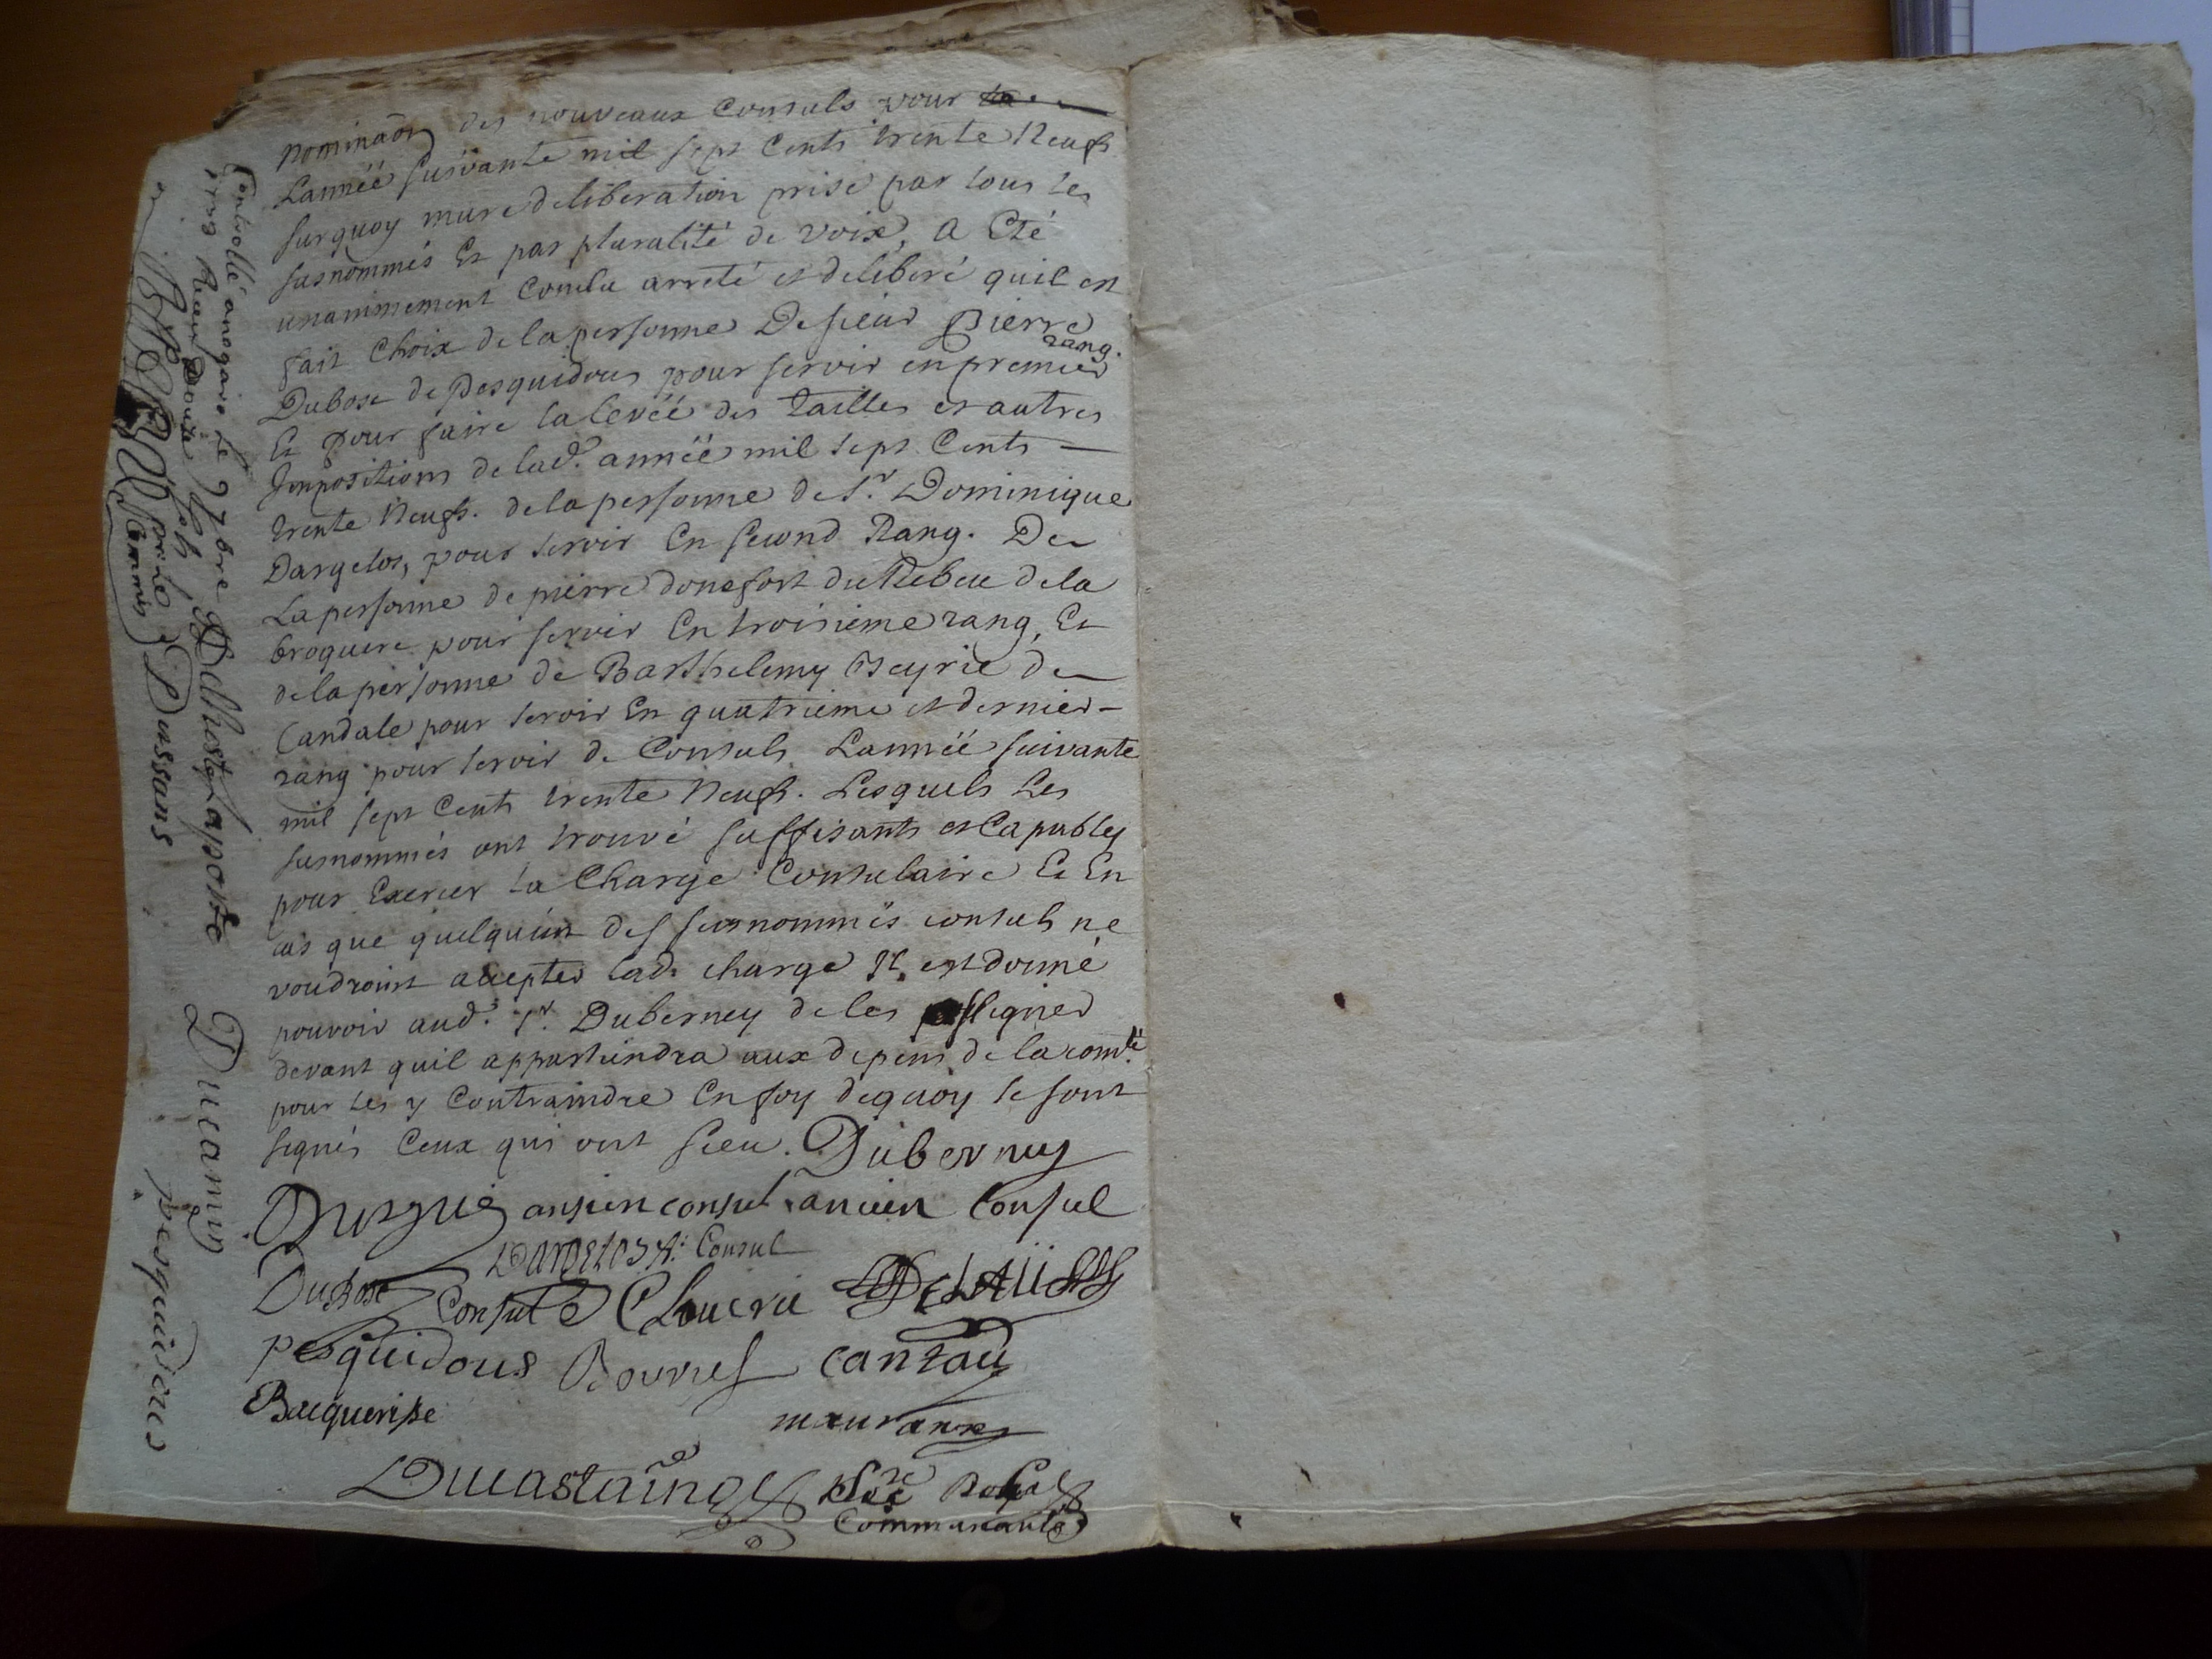 nominaõn des nouveaux Consuls pour
Lannéé suivante mil sept Cents trente Neufs
surquoy mure deliberation prise par tous les
susnommés Et par pluralité de voix, a Eté
unanimement Conclu arreté et deliberé quil est
fait Choix de la personne De sieur Pierre
Dubosc de Pesquidous pour servir en premier rang.
Et pour faire la levéé des tailles et autres
Impositions de lad.e annéé mil sept Cents —
trente Neufs. de la personne de Sr. Dominique
Dargelos, pour servir En second Rang. De
La personne de pierre donefort du de la
broquere pour servir En troisieme rang, Et
de la personne de Barthelemy Peyrie de
Candale pour servir En quatrieme et dernier —
rang pour servir de Consuls Lannéé suivante
mil sept Cents trente Neufs. Lesquels Les
susnommés ont trouvé suffisants et Capables
pour Exercer la Charge Consulaire Et En
cas que quelquun des susnommés consuls ne
voudroint accepter lad. charge Il est donné
pouvoir aud.t Sr. Duberney de les assigner
devant quil appartiendra aux depens de la com.té
pour les y Contraindre En foy dequoy se sont
signés Ceux qui ont sceu. Duberney
ansien consul ancien Consul
Dargelos A. Consul
Dubosc Consul
Pesquidous Cantau
Bacquerisse
mauranx
Ducastaing
Communauté
Controllé anogaro le 7bre
1738 Recu Douze sols
Commis
Delhoste Laporte Ducanin
Dassans pesquidous